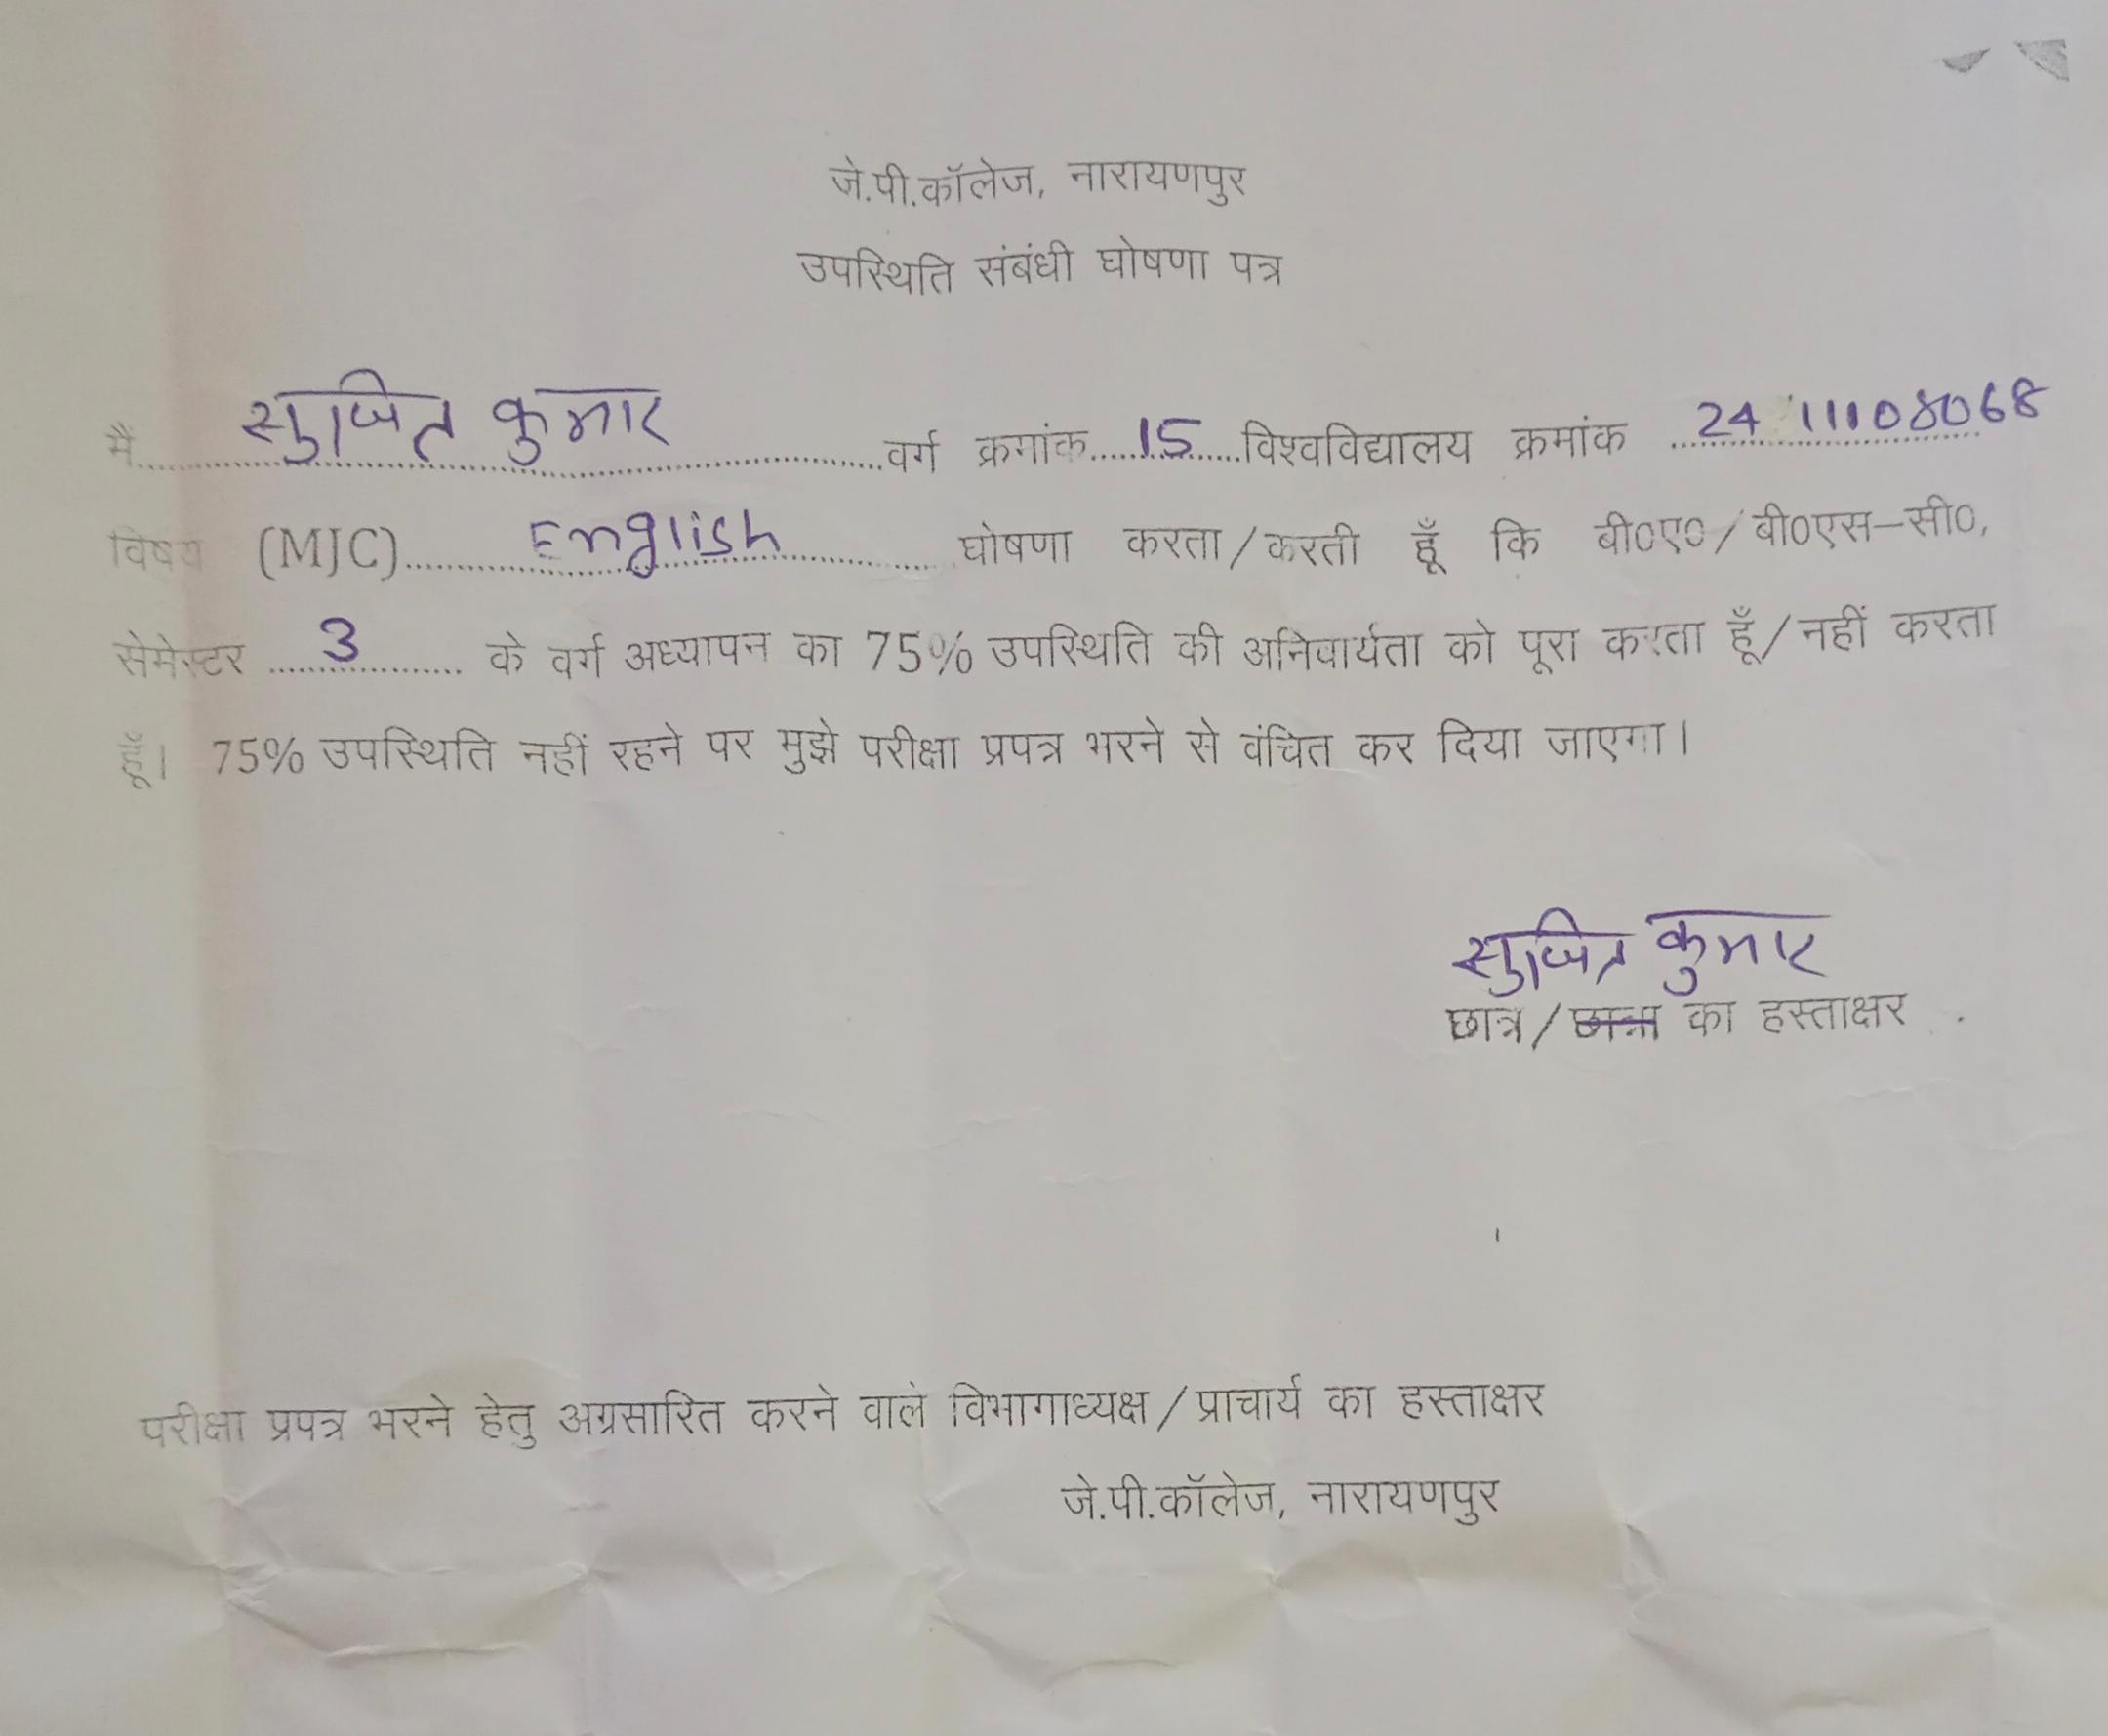 जे.पी.कॉलेज, नारायणपुर
उपस्थिति संबंधी घोषणा पत्र
मैं सुजित कुमार वर्ग क्रमांक 15 विश्वविद्यालय क्रमांक 24 11108068
विषय (MJC) English घोषणा करता/करती हूँ कि बी०ए०/बी०एस–सी०,
सेमेस्टर 3 के वर्ग अध्यापन का 75% उपस्थिति की अनिवार्यता को पूरा करता हूँ/नहीं करता
हूँ। 75% उपस्थिति नहीं रहने पर मुझे परीक्षा प्रपत्र भरने से वंचित कर दिया जाएगा।
सुजित कुमार
छात्र/छात्रा का हस्ताक्षर
परीक्षा प्रपत्र भरने हेतु अग्रसारित करने वाले विभागाध्यक्ष/प्राचार्य का हस्ताक्षर
जे.पी.कॉलेज, नारायणपुर